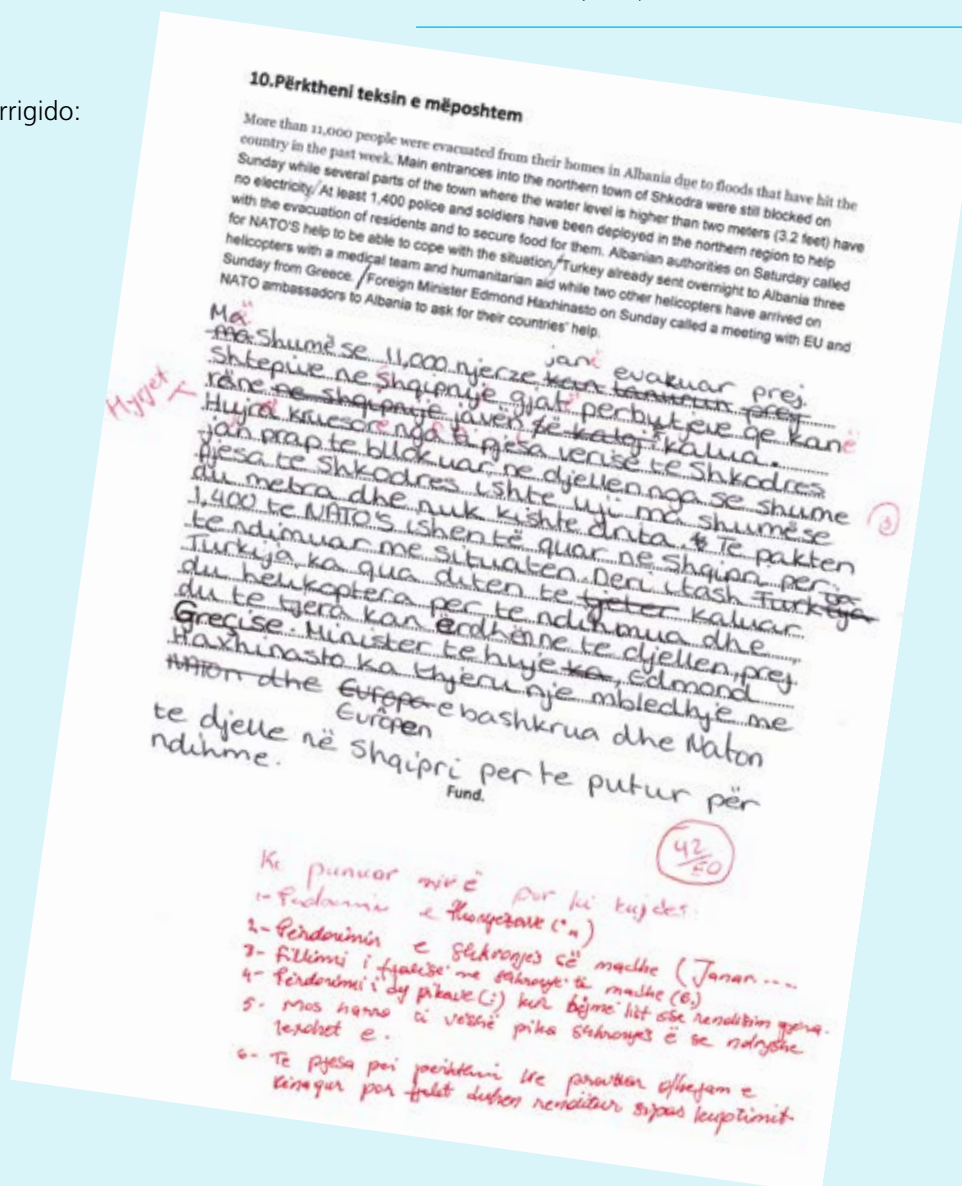 rrigido:
10.Përktheni teksin e mëposhtem
More than 11,000 people were evacuated from their homes in Albania due to floods that have hit the
country in the past week. Main entrances into the northern town of Shkodra were still blocked on
Sunday while several parts of the town where the water level is higher than two meters (3.2 feet) have
no electricity/At least 1,400 police and soldiers have been deployed in the northern region to help
with the evacuation of residents and to secure food for them. Albanian authorities on Saturday called
for NATO'S help to be able to cope with the situation/Turkey already sent overnight to Albania three
helicopters with a medical team and humanitarian aid while two other helicopters have arrived on
Sunday from Greece. /Foreign Minister Edmond Haxhinasto on Sunday called a meeting with EU and
NATO ambassadors to Albania to ask for their countries' help.
Më
ma Shumë se 11,000 njerze janë evakuar prej
Shtepive ne Shqipnije gjatë perbytjeve qe kanë
rëne ne shqipnije javën kalua.
Hyrjet
Hujra kruesore nga pjesa verise te Shkodres
jan prap te bllokuar ne djellen nga se shume
pjesa te Shkodres ishte uji ma shumë se
du metra dhe nuk kishte drita. Te pakten
1,400 te NATO'S ishen të quar ne Shqipri per
te ndimuar me situaten. Deri i tash Turkija
Turkija, ka qua diten te tjeter kaluar
du helikoptera per te ndihmua dhe
du te tjera kan ërdhënne te djellen, prej
Greqise. Minister te huje ka, Edmond
Haxhinasto ka thjeru nje mbledhje me
NATOn dhe Europa e bashkrua dhe Naton
Européen
te djelle në Shqipri per te putur për
ndihme.
Fund.
42/50
Ke punuar mirë por ki kujdes.
1-
2- Përdorimin e shkronjes së madhe (Janar....
3- Fillimi i fjalisë me shkronje të madhe (6.)
4- Përdorimi i dy pikave (:) kur bëjmë list ose renditim
5- Mos harro ti veshë pika shkronjes ë se ndryshe
lexohet e.
6- Te pjesa
por fjalët duhen renditur sipas kuptimit